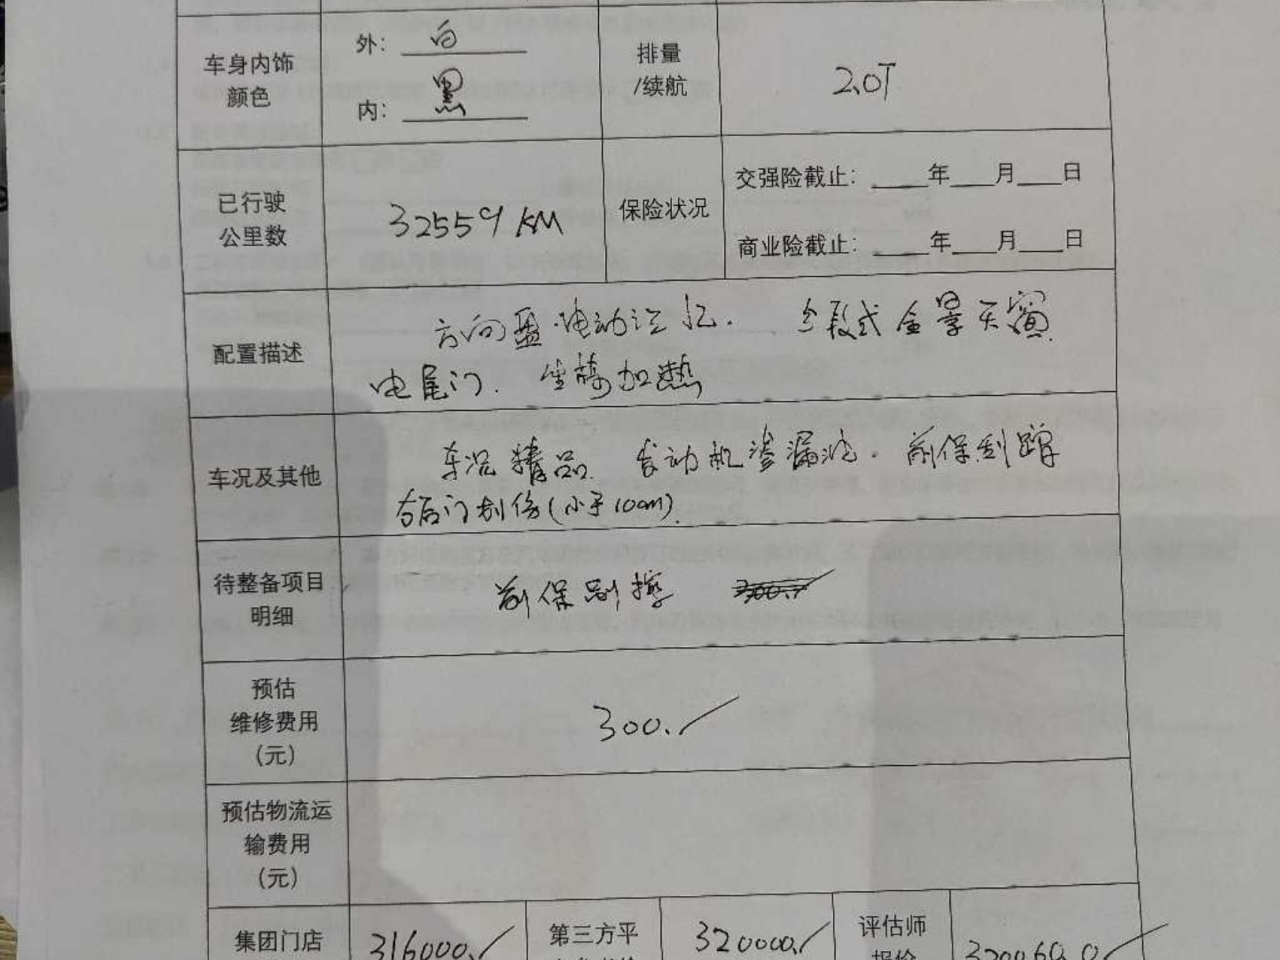 车身内饰
颜色
外: 白
内: 黑
排量
/续航
2.0T
已行驶
公里数
32559KM
保险状况
交强险截止: ____年___月___日
商业险截止: ____年___月___日
配置描述
方向盘.电动记忆. 分段式全景天窗.
电尾门. 坐椅加热
车况及其他
车况精品 发动机渗漏油. 前保刮蹭
右后门划伤(小于10cm).
待整备项目
明细
前保剐擦
预估
维修费用
(元)
300.
预估物流运
输费用
(元)
集团门店
316000.
第三方平
320000.
评估师
报价